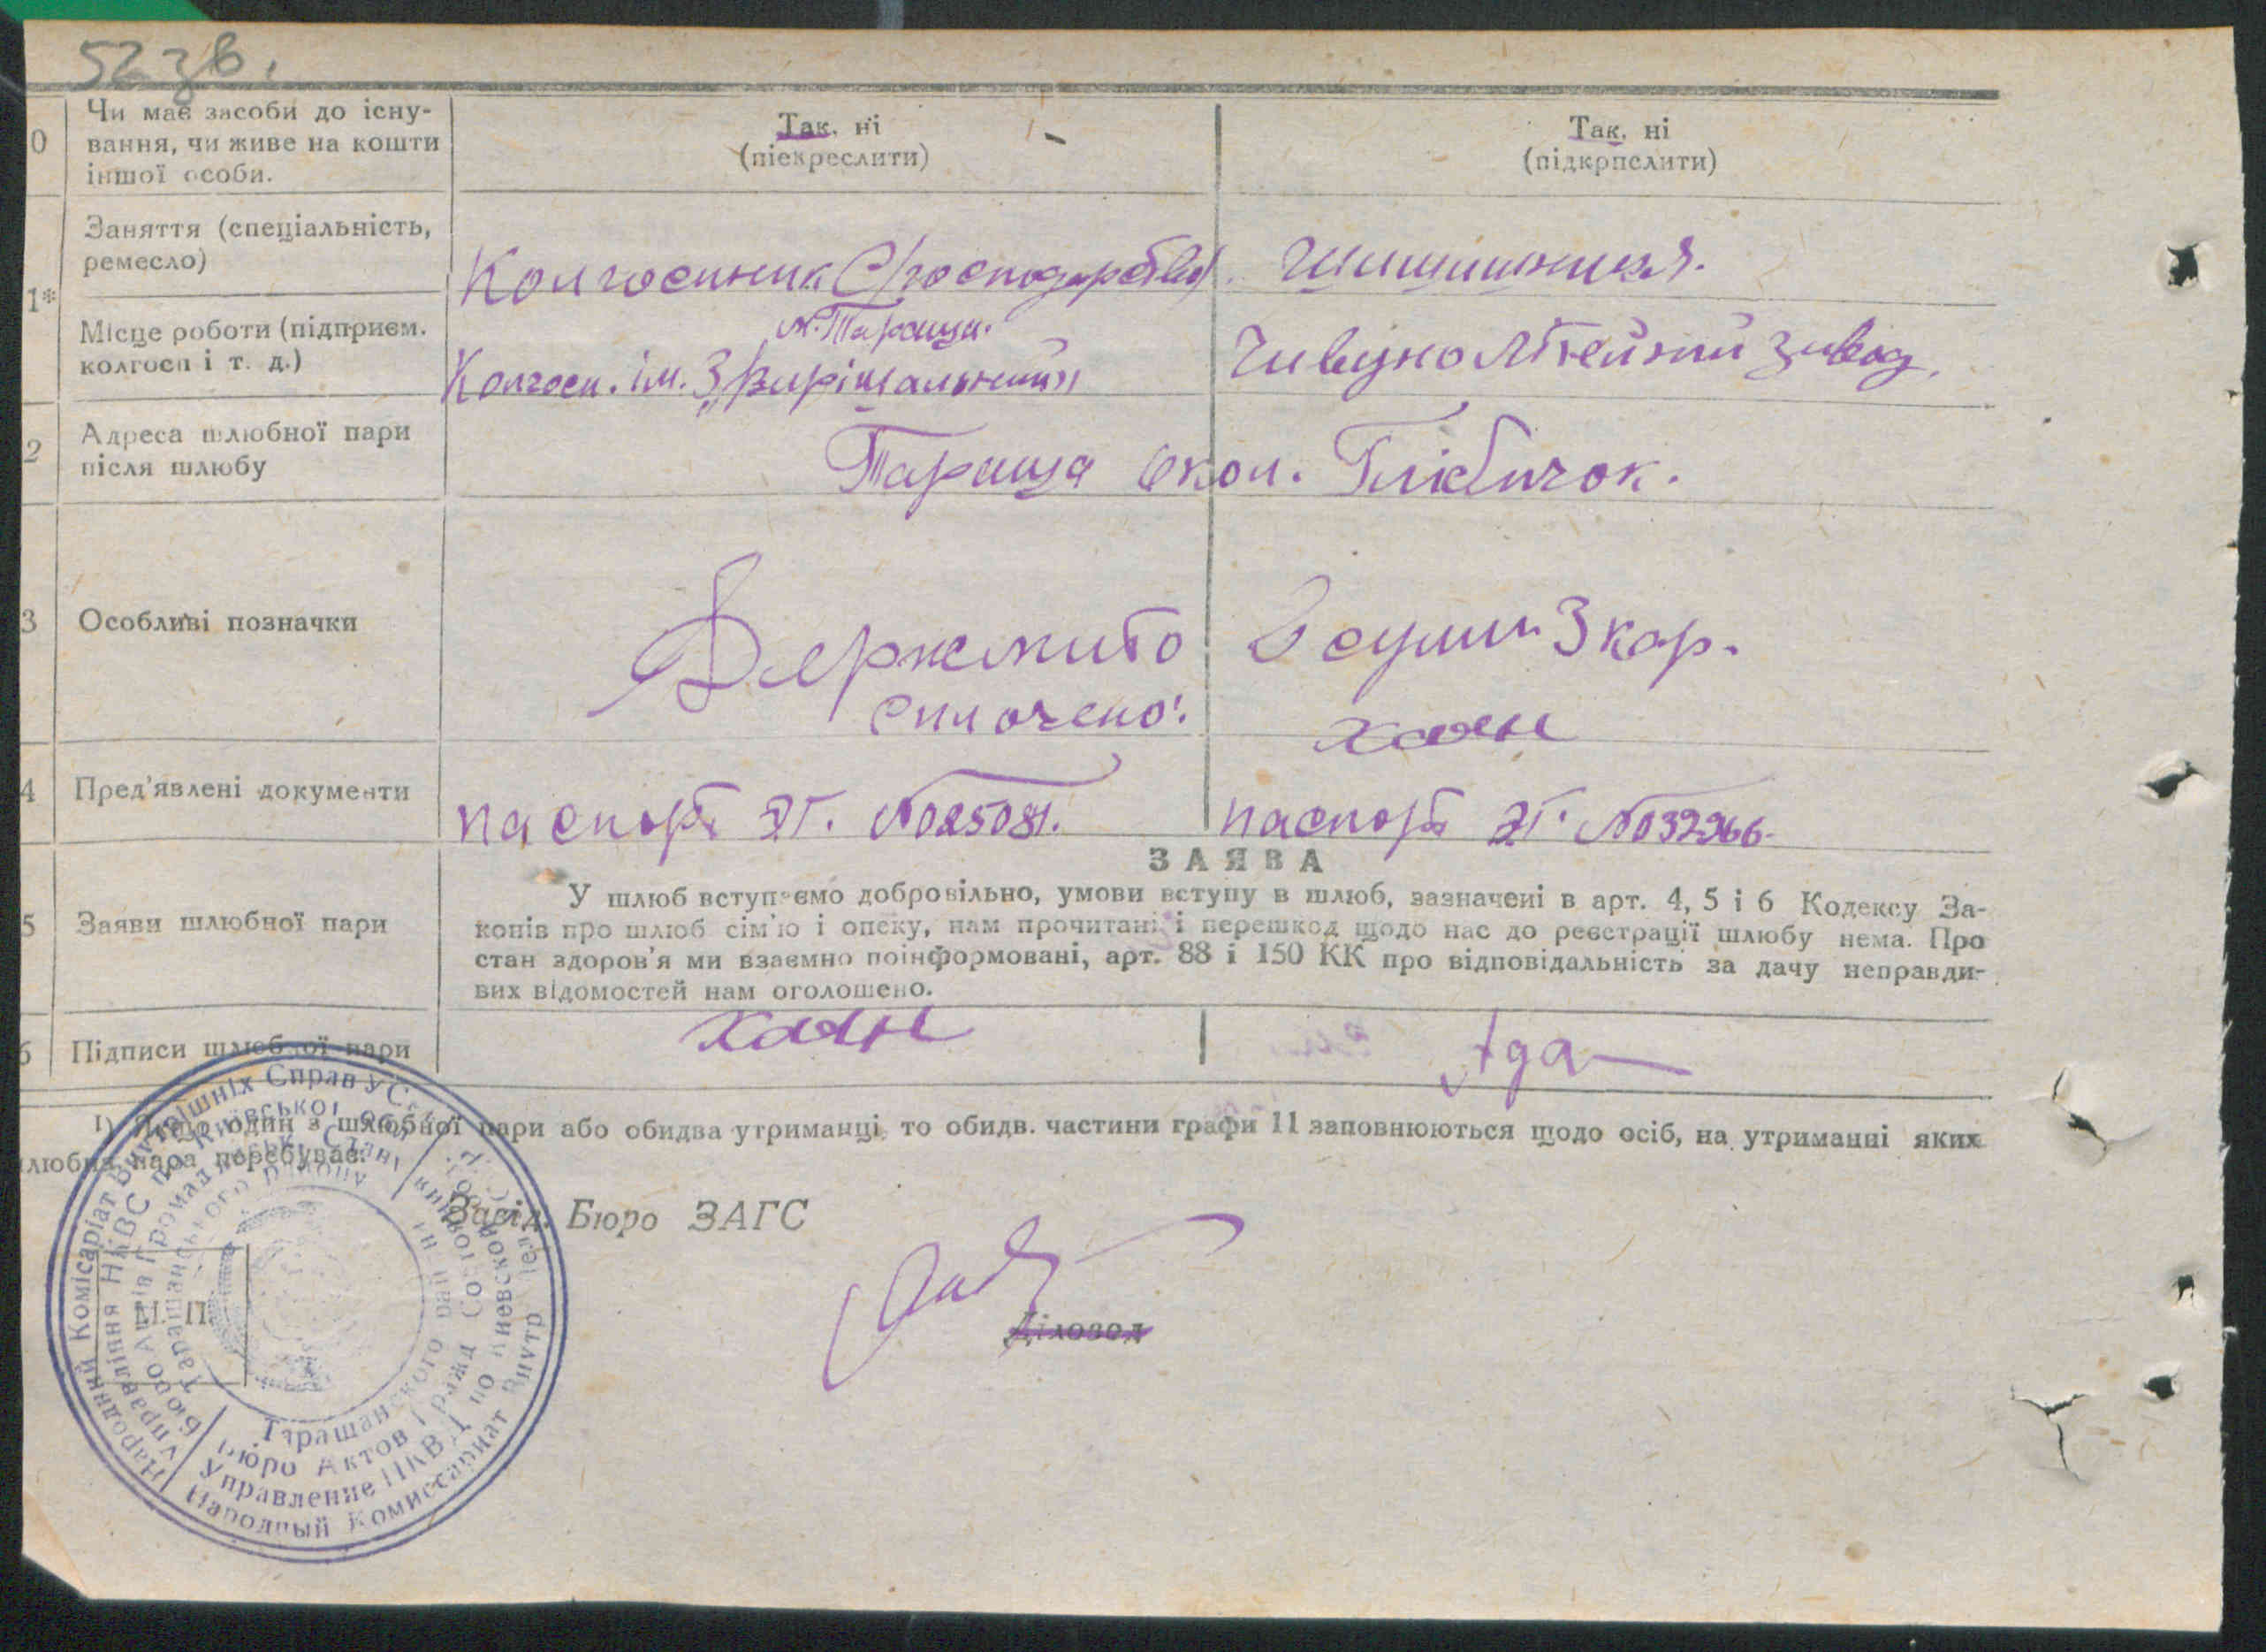 52 зв.
0
Чи має засоби до існу-
вання, чи живе на кошти
іншої особи.
Так, ні
(піекреслити)
Так, ні
(підкрпслити)
1*
Заняття (спеціальність,
ремесло)
Колгоспник С/господарства.
Місце роботи (підприєм.
колгосп і т. д.)
м. Тараща.
Колгосп. ім. 3 „Вирішальний"
Чивуно литейний завод.
2
Адреса шлюбної пари
після шлюбу
Тараща окол. Глібичок.
3
Особливі позначки
Держмито сплочено:
В сумі 3 кар.
хаян
4
Пред'явлені документи
паспорт ЭГ. №025081.
паспорт ЭГ. №032966.
ЗАЯВА
5
Заяви шлюбної пари
У шлюб вступаємо добровільно, умови вступу в шлюб, зазначені в арт. 4, 5 і 6 Кодексу За-
конів про шлюб сім'ю і опеку, нам прочитані і перешкод щодо нас до реєстрації шлюбу нема. Про
стан здоров'я ми взаємно поінформовані, арт. 88 і 150 КК про відповідальність за дачу неправди-
вих відомостей нам оголошено.
6
Підписи шлюбної пари
хаян
1) Якщо один з шлюбної пари або обидва утриманці, то обидв. частини графи 11 заповнюються щодо осіб, на утриманні яких
шлюбна пара перебуває.
Завід. Бюро ЗАГС
Діловод
М. П.
Народний Комісаріат Внутрішніх Справ УС
Управління НКВС по Київської обл
Бюро Актів Громадянськ. Стані
Таращанського району
Таращанского района
Бюро Актов Гражд Состояния
Управление НКВД по Киевской обл.
Народный Комиссариат Внутр